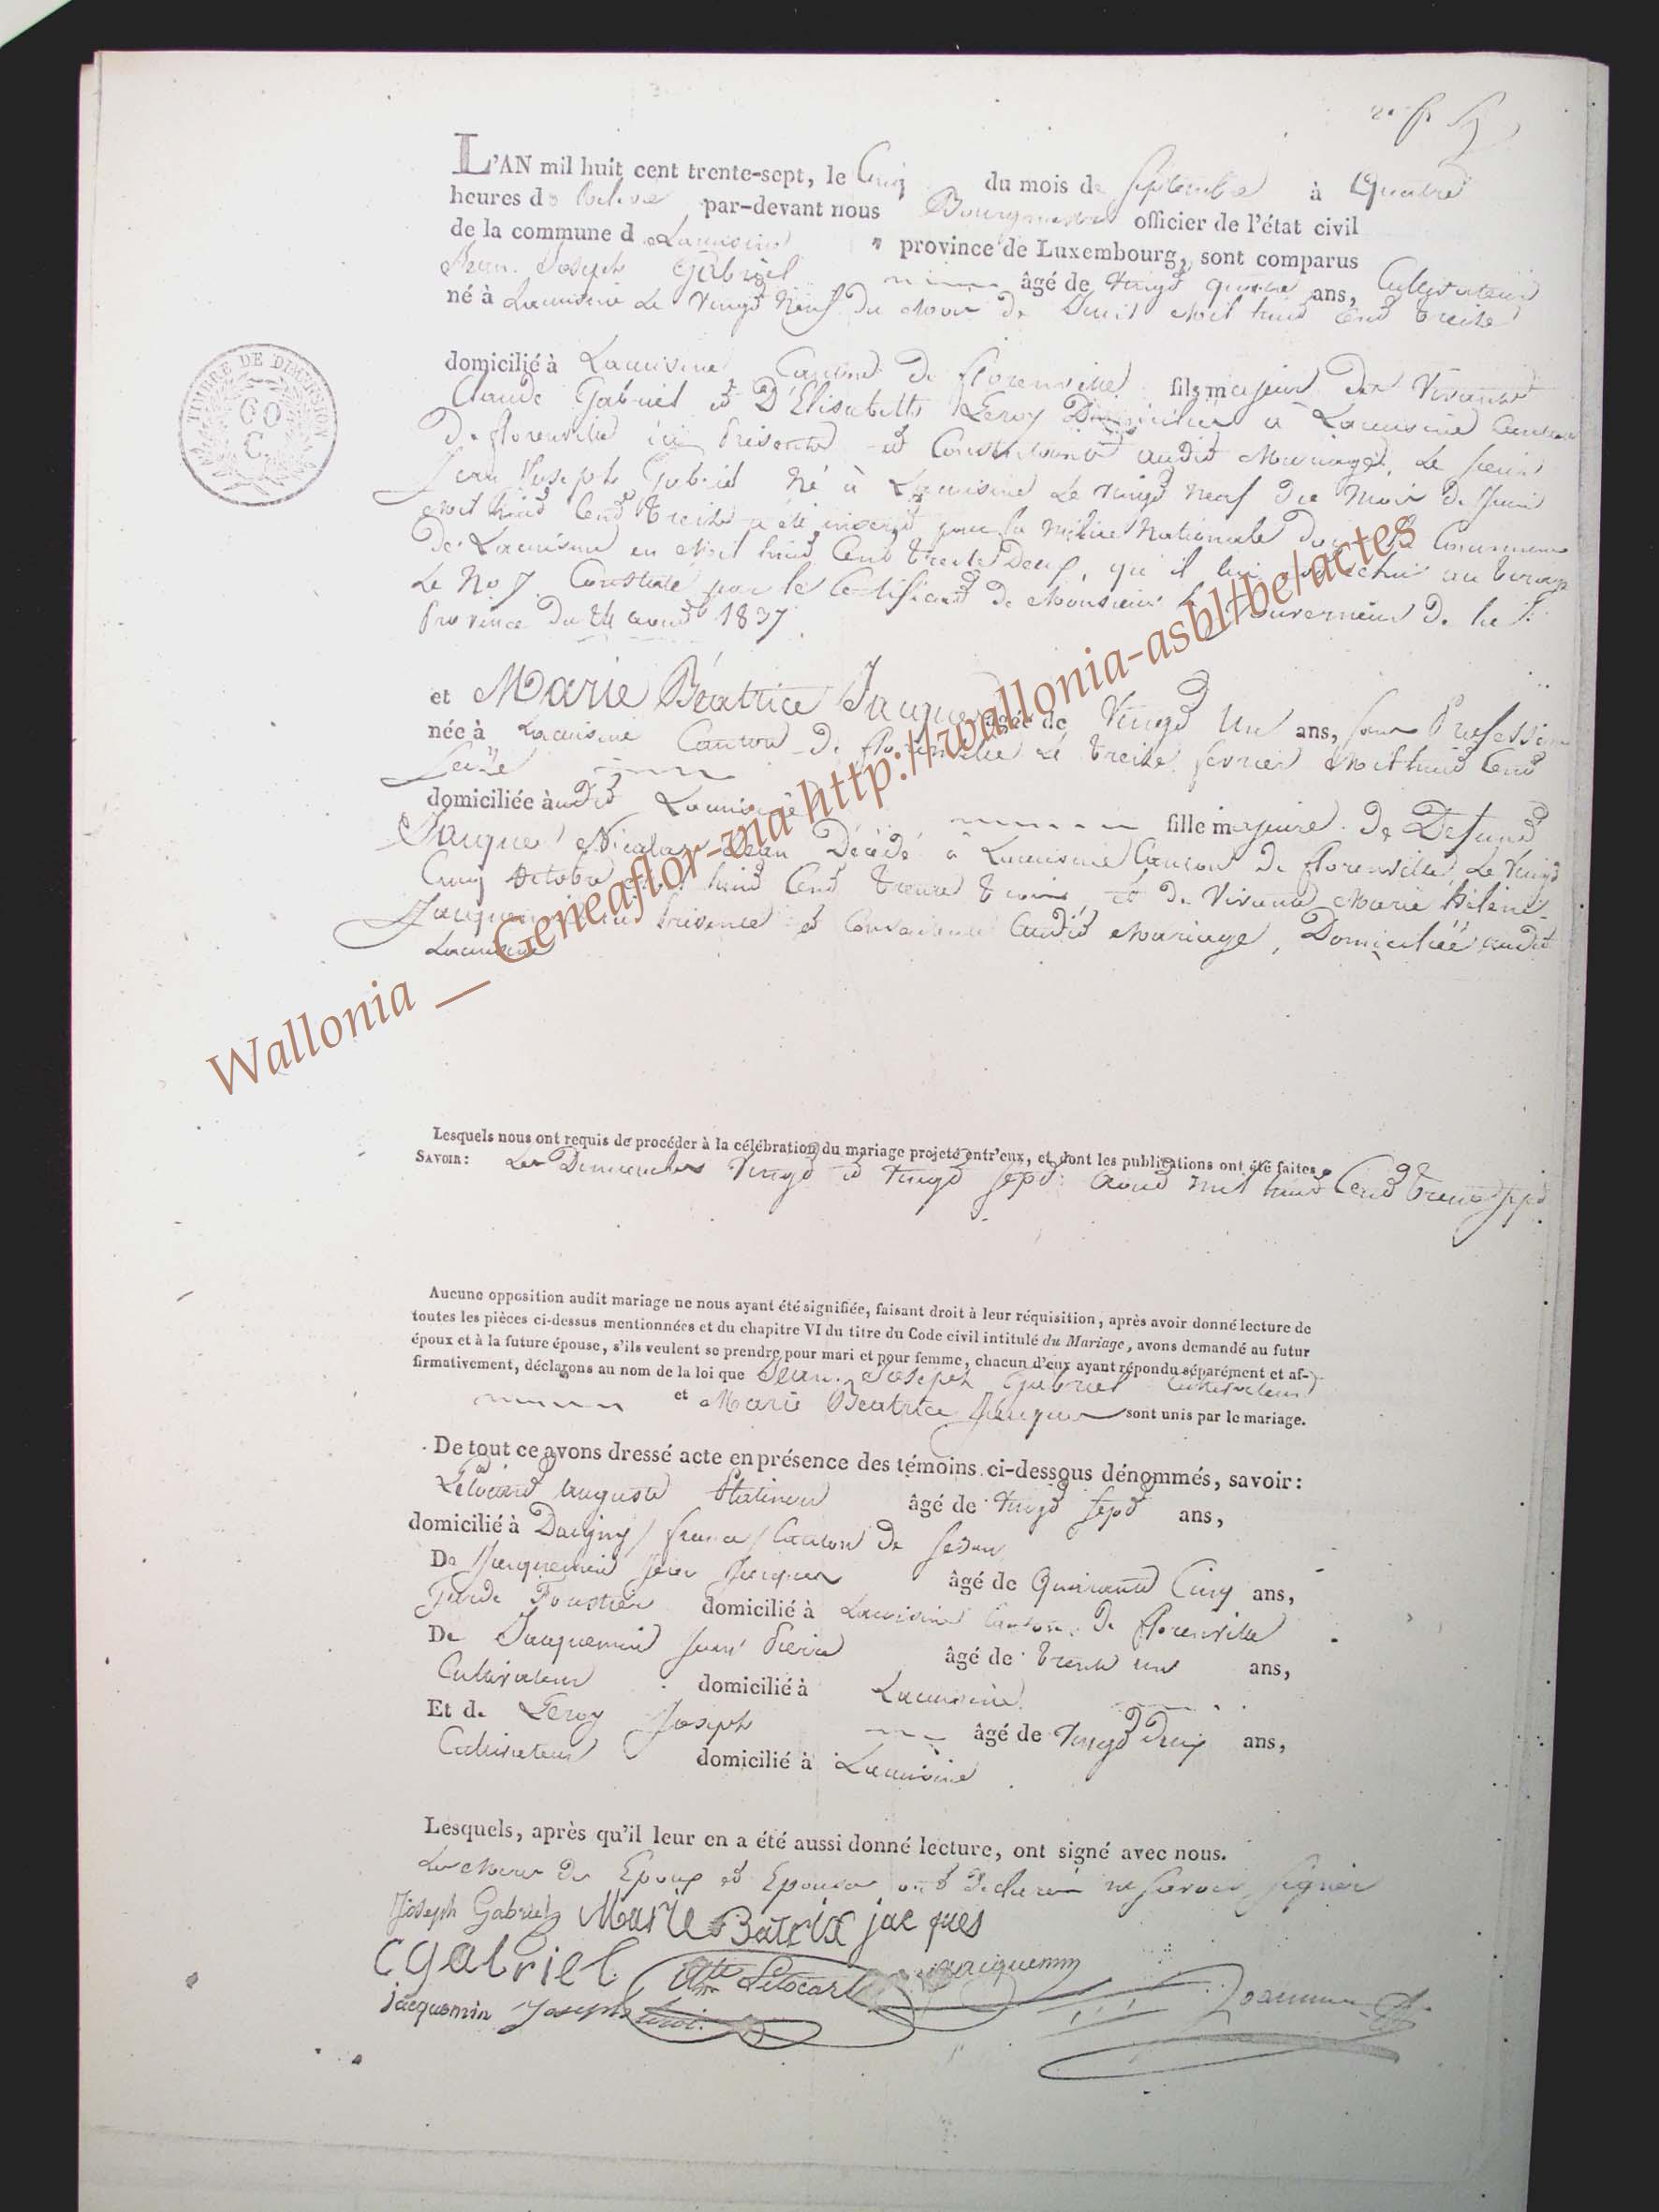 L'AN mil huit cent trente-sept, le Cinq du mois de Septembre à Quatre
heures de relevé par-devant nous Bourgmestre officier de l'état civil
de la commune de Lacuisine province de Luxembourg, sont comparus
Jean Joseph Gabriel âgé de Vingt quatre ans, Cultivateur
né à Lacuisine Le Vingt Neuf du Mois de Juin Mil huit Cent treize
TIMBRE DE DIMENSION
60
C.
domicilié à Lacuisine Canton de florenville fils majeur des Vivants
Claude Gabriel et D'Elisabeth Leroy Domiciliés à Lacuisine Canton
De florenville ici Présents et Consentants audit Mariage. Le sieur
Jean Joseph Gabriel Né à Lacuisine Le vingt Neuf du Mois de Juin
Mil huit Cent treize a été inscrit pour la Milice Nationale dans la Commune
De Lacuisine en Mil huit Cent trente Deux, qu'il lui est échu au tirage
Le No 7. Constaté par le Certificat de Monsieur le Gouverneur de la
Province Du 24 aout 1837.
et Marie Béatrice Jacques âgée de Vingt Un ans, sans Profession
née à Lacuisine Canton de florenville Le treize fevrier Mil huit Cent
Seize
domiciliée audit Lacuisine fille majeure de Defunt
Jacques Nicolas Jean Décédé à Lacuisine Canton de florenville, Le Vingt
Cinq Octobre Mil huit Cent trente trois, et de Vivante Marie hélène
Jacquemin ici Présente et Consentante audit Mariage, Domiciliée audit
Lacuisine
Wallonia __ Geneaflor-via http://wallonia-asbl//be/actes
Lesquels nous ont requis de procéder à la célébration du mariage projeté entr'eux, et dont les publications ont été faites,
SAVOIR: Les Dimanches Vingt et Vingt Sept aout mil huit Cent trente sept
Aucune opposition audit mariage ne nous ayant été signifiée, faisant droit à leur réquisition, après avoir donné lecture de
toutes les pièces ci-dessus mentionnées et du chapitre VI du titre du Code civil intitulé du Mariage, avons demandé au futur
époux et à la future épouse, s'ils veulent se prendre pour mari et pour femme, chacun d'eux ayant répondu séparément et af-
firmativement, déclarons au nom de la loi que Jean Joseph Gabriel Cultivateur
et Marie Béatrice Jacques sont unis par le mariage.
De tout ce avons dressé acte en présence des témoins ci-dessous dénommés, savoir:
Auguste âgé de Vingt Sept ans,
domicilié à Daigny / france / Canton de Sedan
De Jacquemin Jean Jacques âgé de Quarante Cinq ans,
Garde Forestier domicilié à Lacuisine Canton de florenville
De Jacquemin Jean Pierre âgé de trente un ans,
Cultivateur domicilié à Lacuisine
Et de Leroy Joseph âgé de Vingt Deux ans,
Cultivateur domicilié à Lacuisine
Lesquels, après qu'il leur en a été aussi donné lecture, ont signé avec nous.
Les Meres des Epoux et Epouse ont déclaré ne Savoir Signer
Joseph Gabriel Marie Batrix jacques
C gabriel Jacquemin
jacquemin Joseph